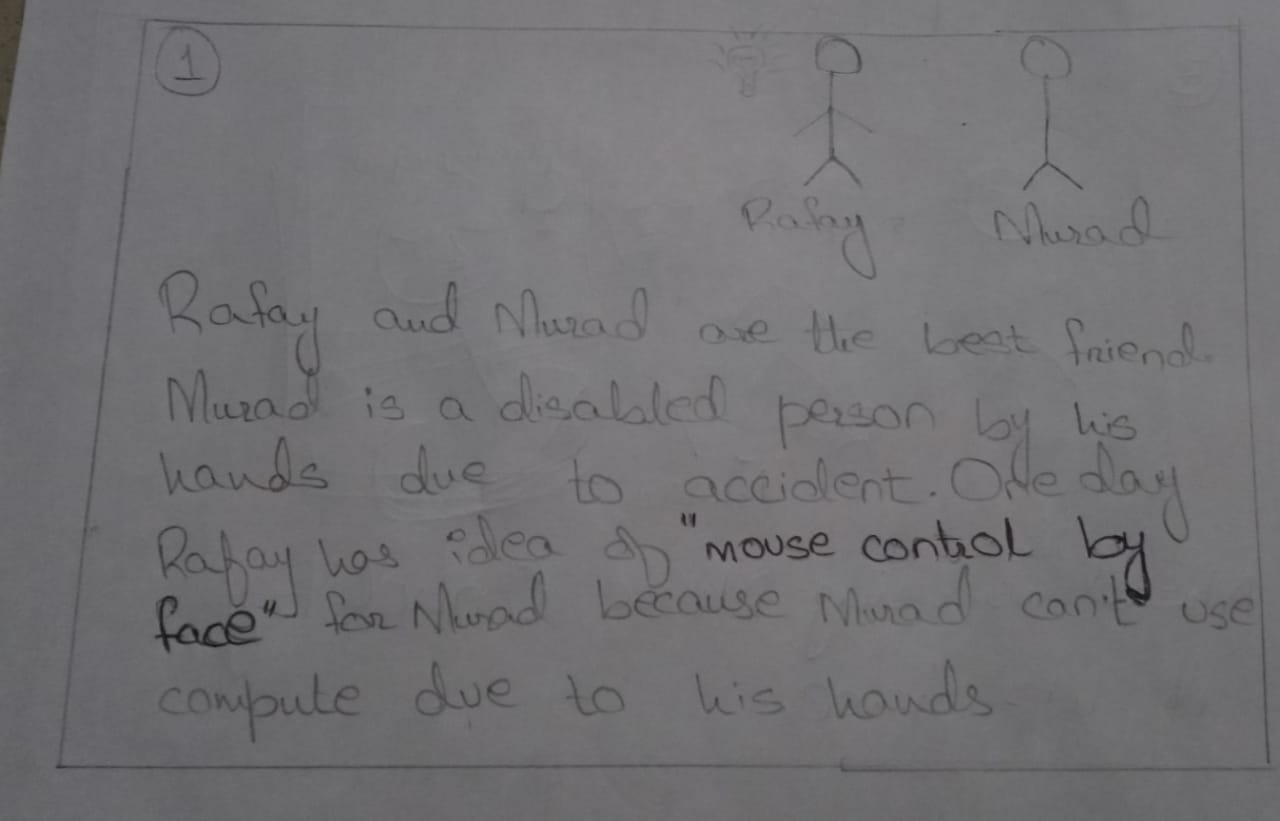 1
Rafay Murad
Rafay and Murad are the best friend.
Murad is a disabled person by his
hands due to accident. One day
Rafay has idea of "mouse control by
face" for Murad because Murad can't use
compute due to his hands.